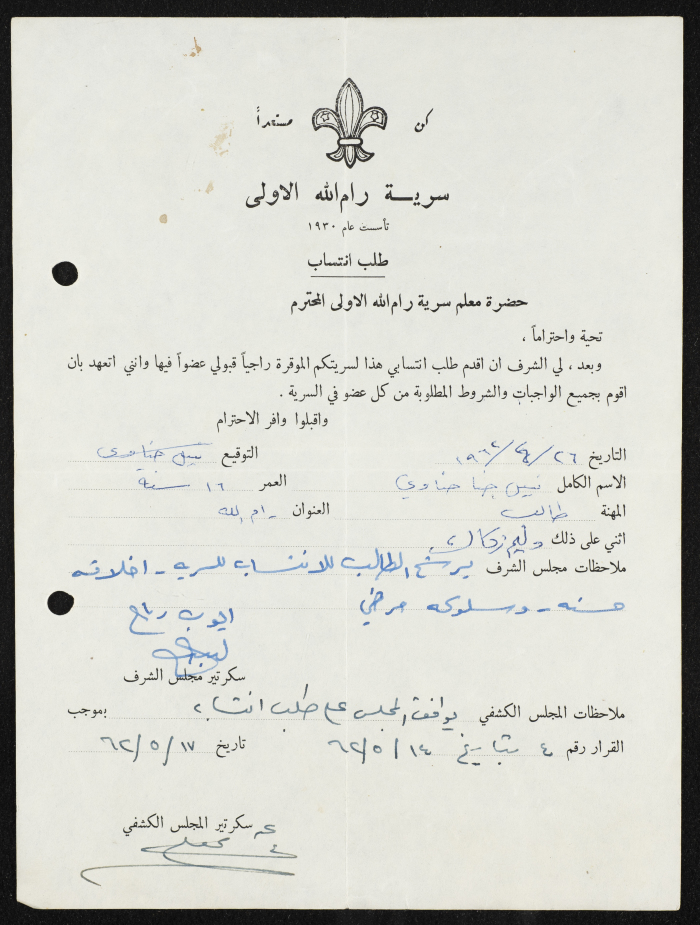 كن مستعداً
سريـــة رام الله الاولى
تأسست عام ١٩٣٠
طلب انتساب
حضرة معلم سرية رام الله الاولى المحترم
تحية واحتراماً ،
وبعد ، لي الشرف ان اقدم طلب انتسابي هذا لسريتكم الموقرة راجياً قبولي عضواً فيها وانني اتعهد بان
اقوم بجميع الواجبات والشروط المطلوبة من كل عضو في السرية .
واقبلوا وافر الاحترام
التاريخ ٢٦/٤/١٩٦٢ التوقيع
الاسم الكامل نبيل حنا حناوي العمر ١٦ سنة
المهنة طالب العنوان رام الله
اثني على ذلك وليم
ملاحظات مجلس الشرف يرشح الطالب للانتساب للسريه - اخلاقه
حسنه - وسلوكه مرضي
ايوب رباح
سكرتير مجلس الشرف
ملاحظات المجلس الكشفي يوافق المجلس على طلب انتسابه بموجب
القرار رقم ٤ بتاريخ ١٤/٥/٦٢ تاريخ ١٧/٥/٦٢
سكرتير المجلس الكشفي